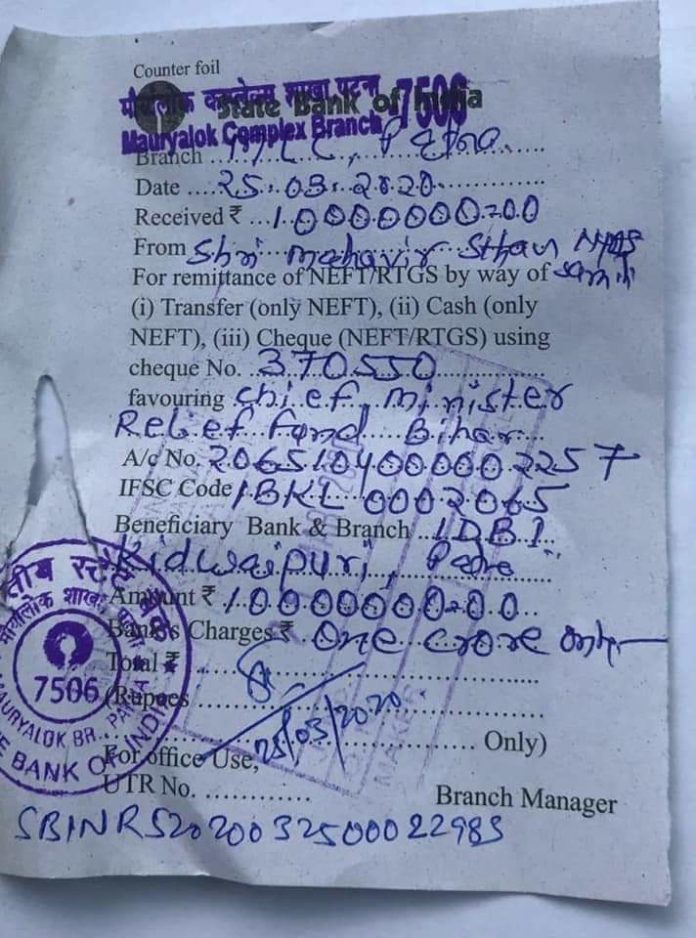 Counter foil
मौर्यालोक कम्प्लेक्स शाखा पटना 7506
State Bank of India
Mauryalok Complex Branch
Branch ... Patna
Date 25.03.2020
Received ₹ 10000000=00
From Shri mahavir Sthan Nyas
For remittance of NEFT/RTGS by way of Samiti
(i) Transfer (only NEFT), (ii) Cash (only
NEFT), (iii) Cheque (NEFT/RTGS) using
cheque No. 370550
favouring chief minister
Relief fund Bihar
A/c No. 2065104000002257
IFSC Code IBKL 0002065
Beneficiary Bank & Branch IDBI
Kidwaipuri,
Amount ₹ 10000000=00
Bank's Charges ₹ One crore only
Total ₹
7506
(Rupees
25/03/2020
Only)
MAURYALOK BR. PATNA
STATE BANK OF INDIA
For office Use,
UTR No.
Branch Manager
SBINR52020032500022983